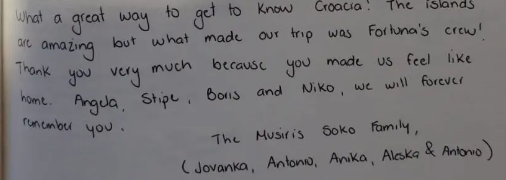 What a great way to get to know Croacia! The islands
are amazing but what made our trip was Fortuna's crew!
Thank you very much because you made us feel like
home. Angela, Stipe, Boris and Niko, we will forever
remember you.
The Musiris Soko Family,
(Jovanka, Antonio, Anika, Aleska & Antonio)